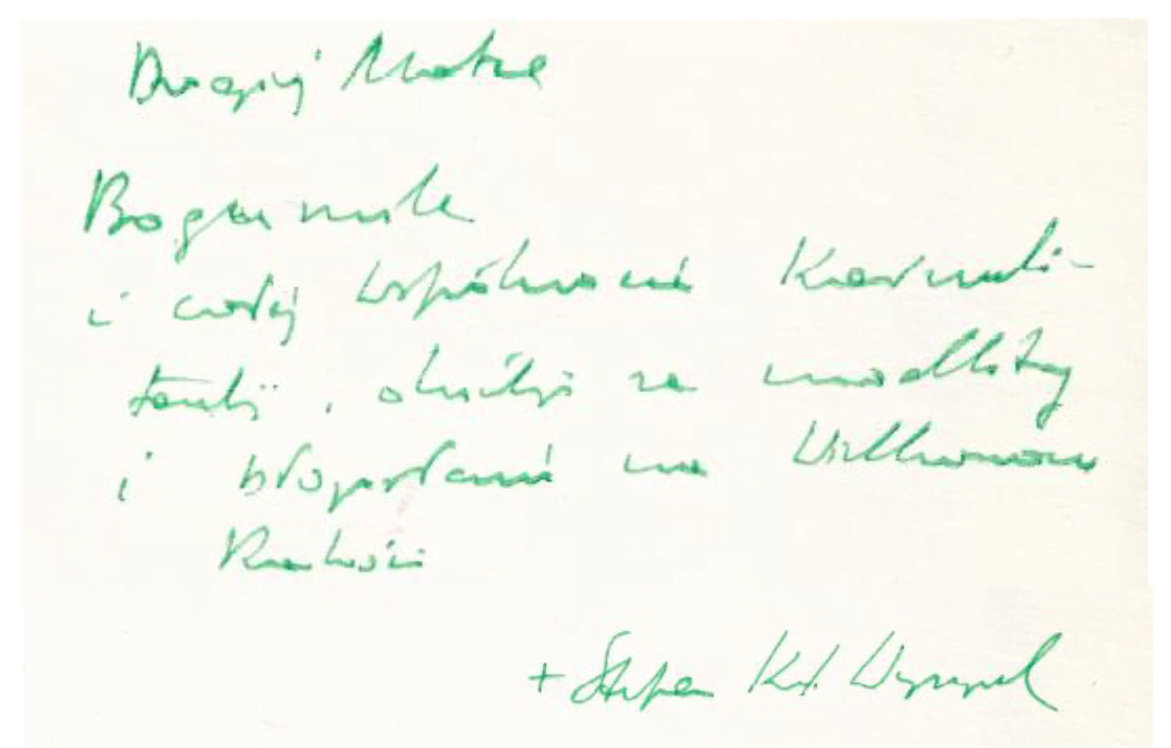 Drogiej Matce
Bogumile
i całej wspólnocie Karmeli-
tanek, dziękuję za modlitwy
i błogosławię na Wielkanocne
Radości
+ Stefan Kard. Wyszyński